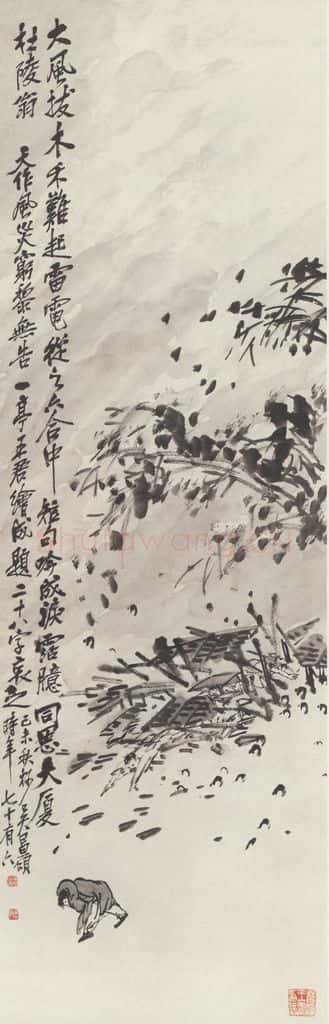 大風拔木禾難起雷電從之六合中短句吟成淚霑臆同思大厦
杜陵翁 天作風災窮黎無告一亭王君繪成題二十八字哀之
己未秋杪吳昌碩
時年七十有六